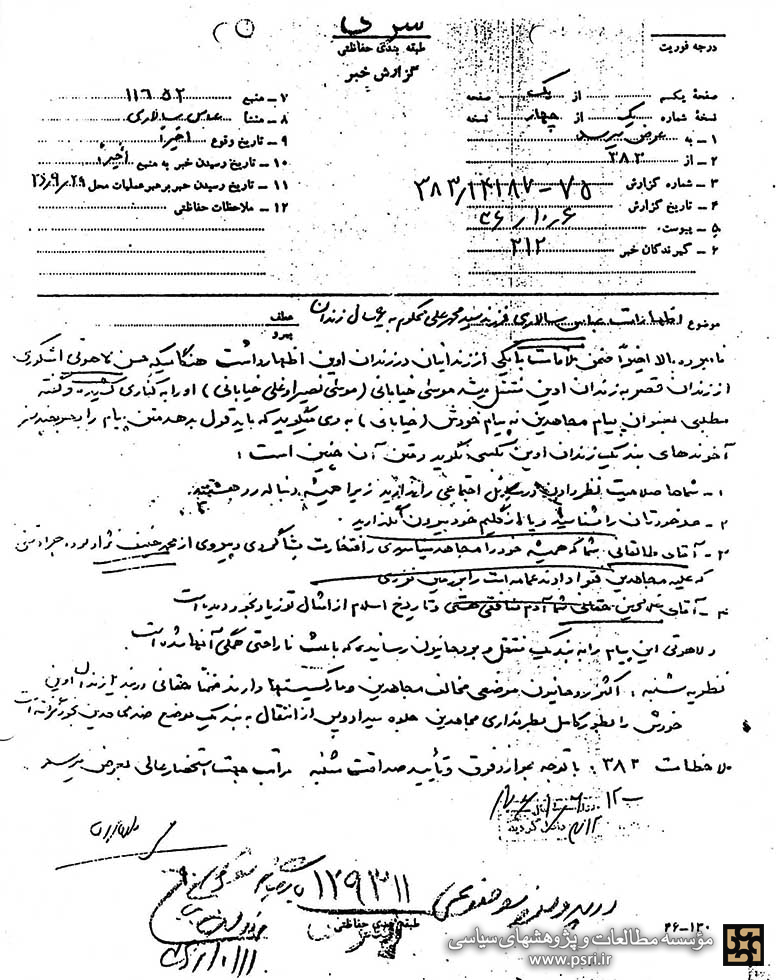 سری
طبقه بندی حفاظتی
گزارش خبر
درجه فوریت
صفحه یکم از یک صفحه
نسخه شماره یک از چهار نسخه
۱ – به عرض میرسد
۲ – از ۳۸۳
۳ – شماره گزارش ۳۸۳/۱۴۱۸۷-۷۵
۴ – تاریخ گزارش ۳۶/۱۰/۶
۵ – پیوست
۶ – گیرندگان خبر ۳۱۲
۷ – منبع ۱۱۶۵۲
۸ – منشأ عباس سالاری
۹ – تاریخ وقوع اخیراً
۱۰ – تاریخ رسیدن خبر به منبع اخیراً
۱۱ – تاریخ رسیدن خبر برهبر عملیات محل ۳۶/۹/۲۹
۱۲ – ملاحظات حفاظتی
موضوع اظهارات عباس سالاری فرزند سید محمد علی محکوم به ۶ سال زندان
عطف
پیرو
نامبرده بالا اخیراً ضمن ملاقات با یکی از زندانیان در زندان اوین اظهار داشت هنگامیکه حسن لاهوتی اشکوری
از زندان قصر به زندان اوین منتقل میشد موسی خیابانی (موسی نصیر اوغلی خیابانی) او را به کناری کشیده و گفته
مطلبی بعنوان پیام مجاهدین نه پیام خودش (خیابانی) به وی میگوید که باید قول بدهد متن پیام را بجز
آخوندهای بند یک زندان اوین بکسی نگوید و متن آن چنین است :
۱ – شماها صلاحیت نظر دادن در مسائل اجتماعی را ندارید زیرا همیشه دنباله رو هستید
۲ – حد خودتان را بشناسید و پا از گلیم خود بیرون نگذارید
۳ – آقای طالقانی شما که همیشه خود را مجاهد میدانستی و افتخارت شاگردی و پیروی از محمد حنیف نژاد بوده چرا
که علیه مجاهدین فتوا دادند عمامه ات را بر زمین نزدی
۴ – آقای حقانی شما آدم منافقی هستی و تاریخ اسلام از امثال تو زیاد بخود دیده است
و لاهوتی این پیام را به بند یک منتقل و بروحانیون رسانیده که باعث ناراحتی همگی آنها شده است
نظریه شنبه : اکثر روحانیون موضعی مخالف مجاهدین و مارکسیستها دارند ضمناً حقانی در بند ۲ زندان اوین
خودش را بطور کامل طرفداری مجاهدین جلوه میداد و پس از انتقال به بند یک موضع ضد مجاهدین بخود گرفته است
ملاحظات ۳۸۳ : با توجه بموارد فوق و تأیید صداقت شنبه مراتب جهت استحضار عالی بعرض میرسد
۱۲۹۳۱۱
طبقه بندی حفاظتی
سری
۴۶–۱۲۰
مؤسسه مطالعات و پژوهشهای سیاسی
www.psri.ir